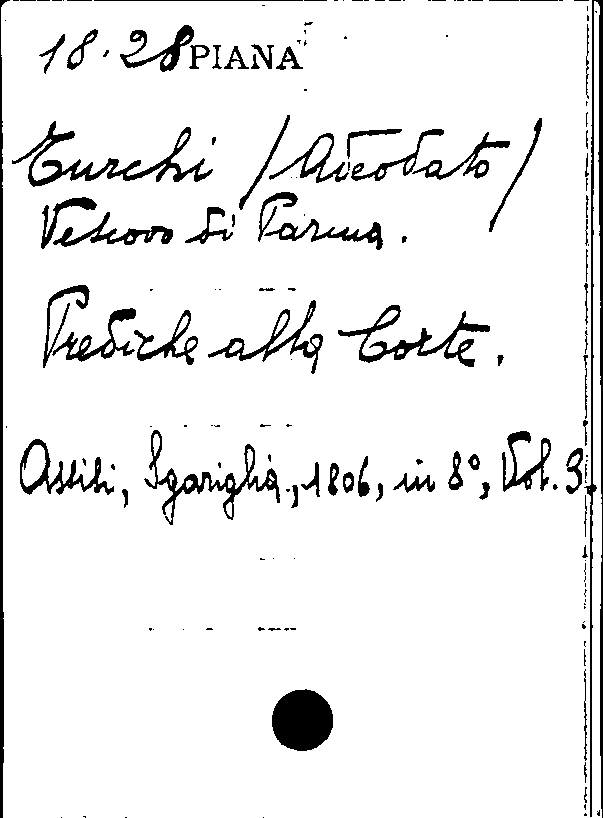 18.28 PIANA
Turchi /Adeodato/
Vescovo di Parma.
Prediche alla Corte.
Assisi, Sgariglia, 1806, in 8°, Vol. 3.